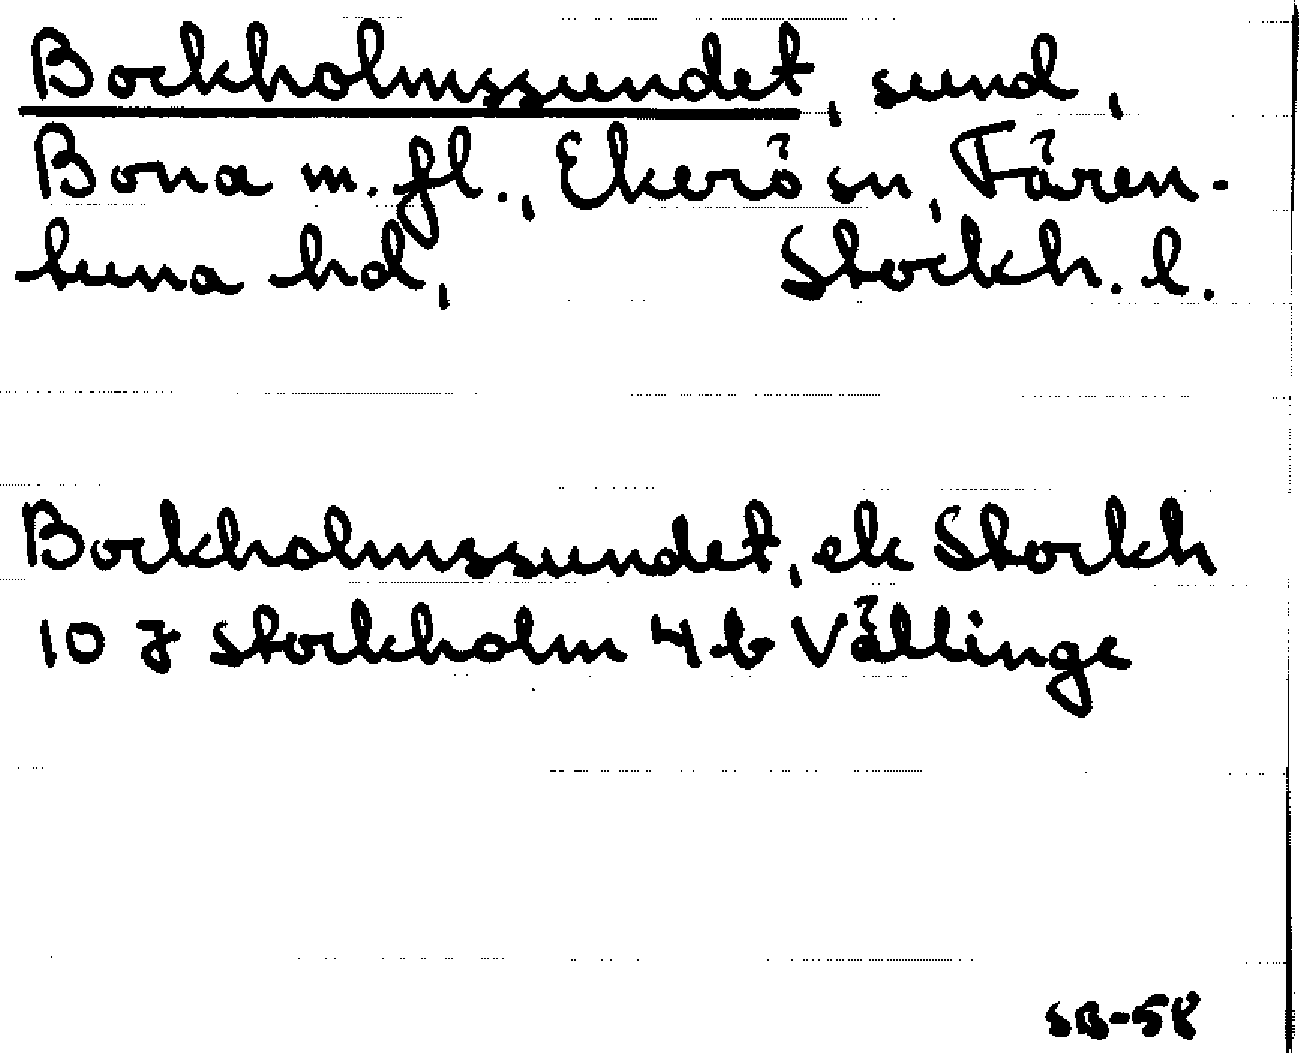 Bockholmssundet, sund,
Bona m.fl., Ekerö sn, Fären-
tuna hd, Stockh. l.
Bockholmssundet, ek Stockh
10 J Stockholm 4 b Vällinge
SB-58